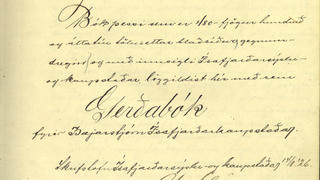 Bók þessi sem er 480 - fjögur hundruð
og áttatíu tölusettar blaðsíður, gegnum-
dregin, og með innsigli Ísafjarðarsýslu-
og kaupstaðar löggildist hér með sem
Gerðabók
fyrir Bæjarstjórn Ísafjarðarkaupstaðar.
Skrifstofu Ísafjarðarsýslu- og kaupstaðar, 14/8 '26.